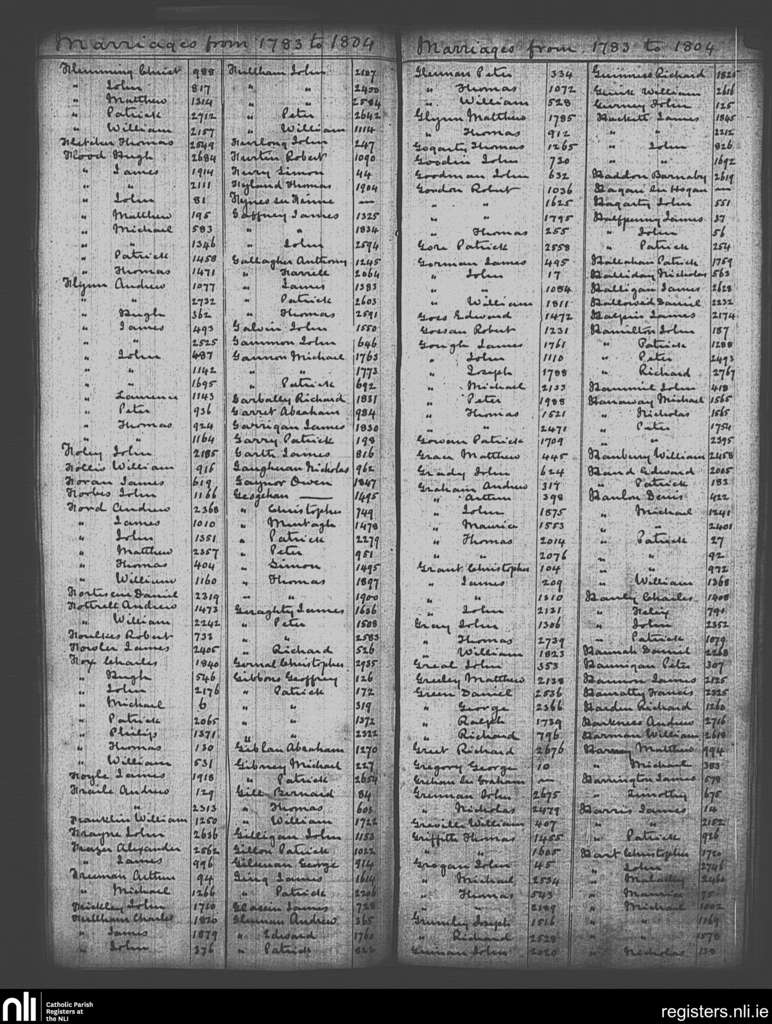 Marriages from 1783 to 1804
Flemming Christ 988
" John 817
" Matthew 1314
" Patrick 2712
" William 2157
Fletcher Thomas 2549
Flood Hugh 2684
" James 1914
" " 2111
" John 81
" Matthew 195
" Michael 583
" " 1346
" Patrick 1458
" Thomas 1471
Flynn Andrew 1077
" " 2732
" Hugh 362
" James 493
" " 2525
" John 487
" " 1142
" " 1695
" Laurence 1143
" Peter 936
" Thomas 924
" " 1164
Foley John 2185
Follis William 916
Foran James 619
Forbes John 1166
Ford Andrew 2368
" James 1010
" John 1351
" Matthew 2357
" Thomas 404
" William 1160
Daniel 2319
Fottrell Andrew 1473
" William 2242
Foulkes Robert 733
Fowler James 2405
Fox Charles 1840
" Hugh 546
" John 2176
" Michael 6
" Patrick 2065
" Philip 1371
" Thomas 130
" William 531
Foyle James 1918
Andrew 129
" " 2313
Franklin William 1250
Frayne John 2636
Frazer Alexander 2562
" James 996
Freeman Arthur 94
" Michael 1266
John 1710
Fullham Charles 1820
" James 1879
" John 376
Fullham John 2107
" " 2450
" " 2584
" Peter 2642
" William 1114
Furlong John 247
Robert 1090
Simon 44
Hyland Thomas 1904
Gaffney James 1325
" " 1834
" John 2594
Gallagher Anthony 1245
" Farrell 2064
" James 1383
" Patrick 2603
" Thomas 2591
Galvin John 1550
Gammon John 646
Gannon Michael 1763
" " 1773
" Patrick 692
Garbally Richard 1831
Garret Abraham 984
Garrigan James 1830
Garry Patrick 198
Garth James 816
Gaughran Nicholas 962
Gaynor Owen 1847
Geoghan — 1495
" Christopher 749
" Murtagh 1478
" Patrick 2279
" Peter 951
" Simon 1495
" Thomas 1897
" " 1900
Geraghty James 1636
" Peter 1508
" " 2583
" Richard 526
Christopher 2935
Gibbons Geoffrey 126
" Patrick 172
" " 319
" " 1372
" " 2322
Giblan Abraham 1270
Gibney Michael 227
" Patrick 2654
Gill Bernard 84
" Thomas 603
" William 1722
Gilligan John 1153
Gillon Patrick 1022
George 914
James 1614
" Patrick 2206
James 728
Andrew 265
" Edward 1760
" Patrick
Marriages from 1783 to 1804
Glennan Peter 334
" Thomas 1072
" William 528
Glynn Matthew 1785
" Thomas 912
Gogarty Thomas 1265
Goodwin John 730
Goodman John 632
Gordon Robert 1036
" " 1625
" " 1795
" Thomas 255
Gore Patrick 2558
Gorman James 495
" John 17
" " 1084
" William 1811
Goss Edward 1472
Robert 1231
Gough James 1761
" John 1110
" Joseph 1788
" Michael 2133
" Peter 1988
" Thomas 1521
" " 2471
Gowan Patrick 1709
Grace Matthew 445
Grady John 624
Graham Andrew 317
" Arthur 398
" John 1875
" Maurice 1553
" Thomas 2014
" " 2076
Grant Christopher 104
" James 209
" " 1210
" John 2121
Gray John 1306
" Thomas 2739
" William 1823
Great John 353
Greeley Matthew 2138
Green Daniel 2536
" George 2366
" Ralph 1739
" Richard 796
Greet Richard 2676
Gregory George 10
Grehan see Graham —
Grennan John 2675
" Nicholas 2479
Greville William 407
Griffith Thomas 1455
" " 1605
Grogan John 45
" Michael 2534
" Thomas 543
" " 2389
Grumley Joseph 1516
" Richard 2528
John 2020
Guinness Richard 1825
William 2616
Gurney John 125
Hackett James 1845
" " 2212
" John 826
" " 1692
Haddon Barnaby 2619
Hagan see Hogan —
Hagarty John 551
Halfpenny James 37
" John 56
" Patrick 254
Hallahan Patrick 1759
Halliday Nicholas 563
Halligan James 2628
Daniel 2232
Halpin James 2174
Hamilton John 187
" Patrick 1288
" Peter 2493
" Richard 2767
Hammil John 418
Hanaway Michael 1565
" Nicholas 1565
" Peter 1754
" " 2395
Hanbury William 2458
Hand Edward 2005
" Patrick 183
Hanlon Denis 422
" Michael 1241
" " 2401
" Patrick 27
" " 92
" " 972
" William 1368
Hanly Charles 1908
" 791
" John 2352
" Patrick 1879
Hannah Daniel 2268
Hannigan Peter 307
Hannon James 2125
Francis 2325
Harden Richard 1260
Harkness Andrew 2716
Harman William 2618
Matthew 994
" Michael 383
Harrington James 578
" Timothy 675
Harris James 14
" " 2152
" Patrick 926
Hart Christopher 1720
" John 2746
" Michael 1002
" " 1169
" " 1578
" Nicholas
nli
Catholic Parish
Registers at
the NLI
registers.nli.ie